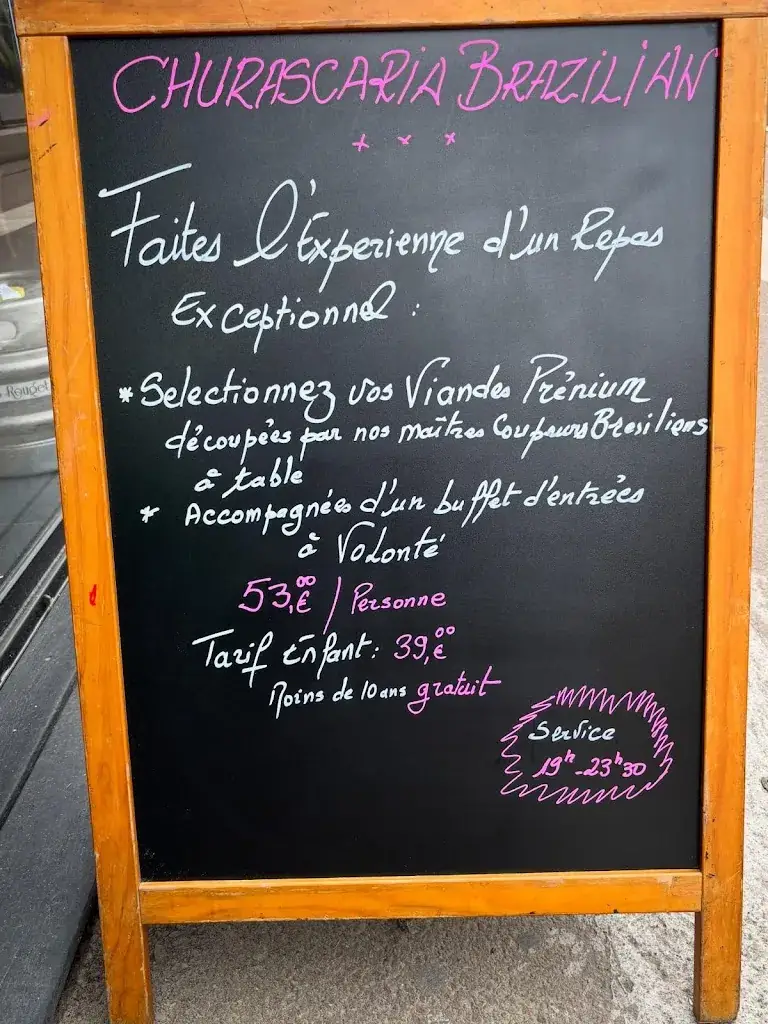 CHURASCARIA BRAZILIAN
Faites l'Experienne d'un Repas
Exceptionnel :
* Selectionnez vos Viandes Prénium
découpées par nos maîtres Coupeurs Bresiliens
à table
* Accompagnées d'un buffet d'entrées
à Volonté
53,00€ / Personne
Tarif Enfant : 39,00€
Moins de 10 ans gratuit
Service
19h - 23h30
Rouget